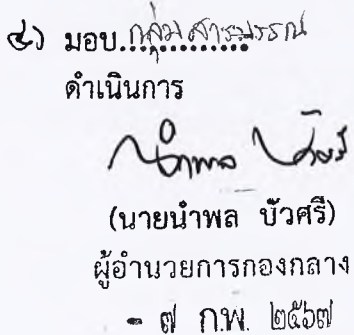 ๔) มอบ..กลุ่มสารบรรณ
ดำเนินการ
(นายนำพล บัวศรี)
ผู้อำนวยการกองกลาง
- ๗ ก.พ. ๒๕๖๗